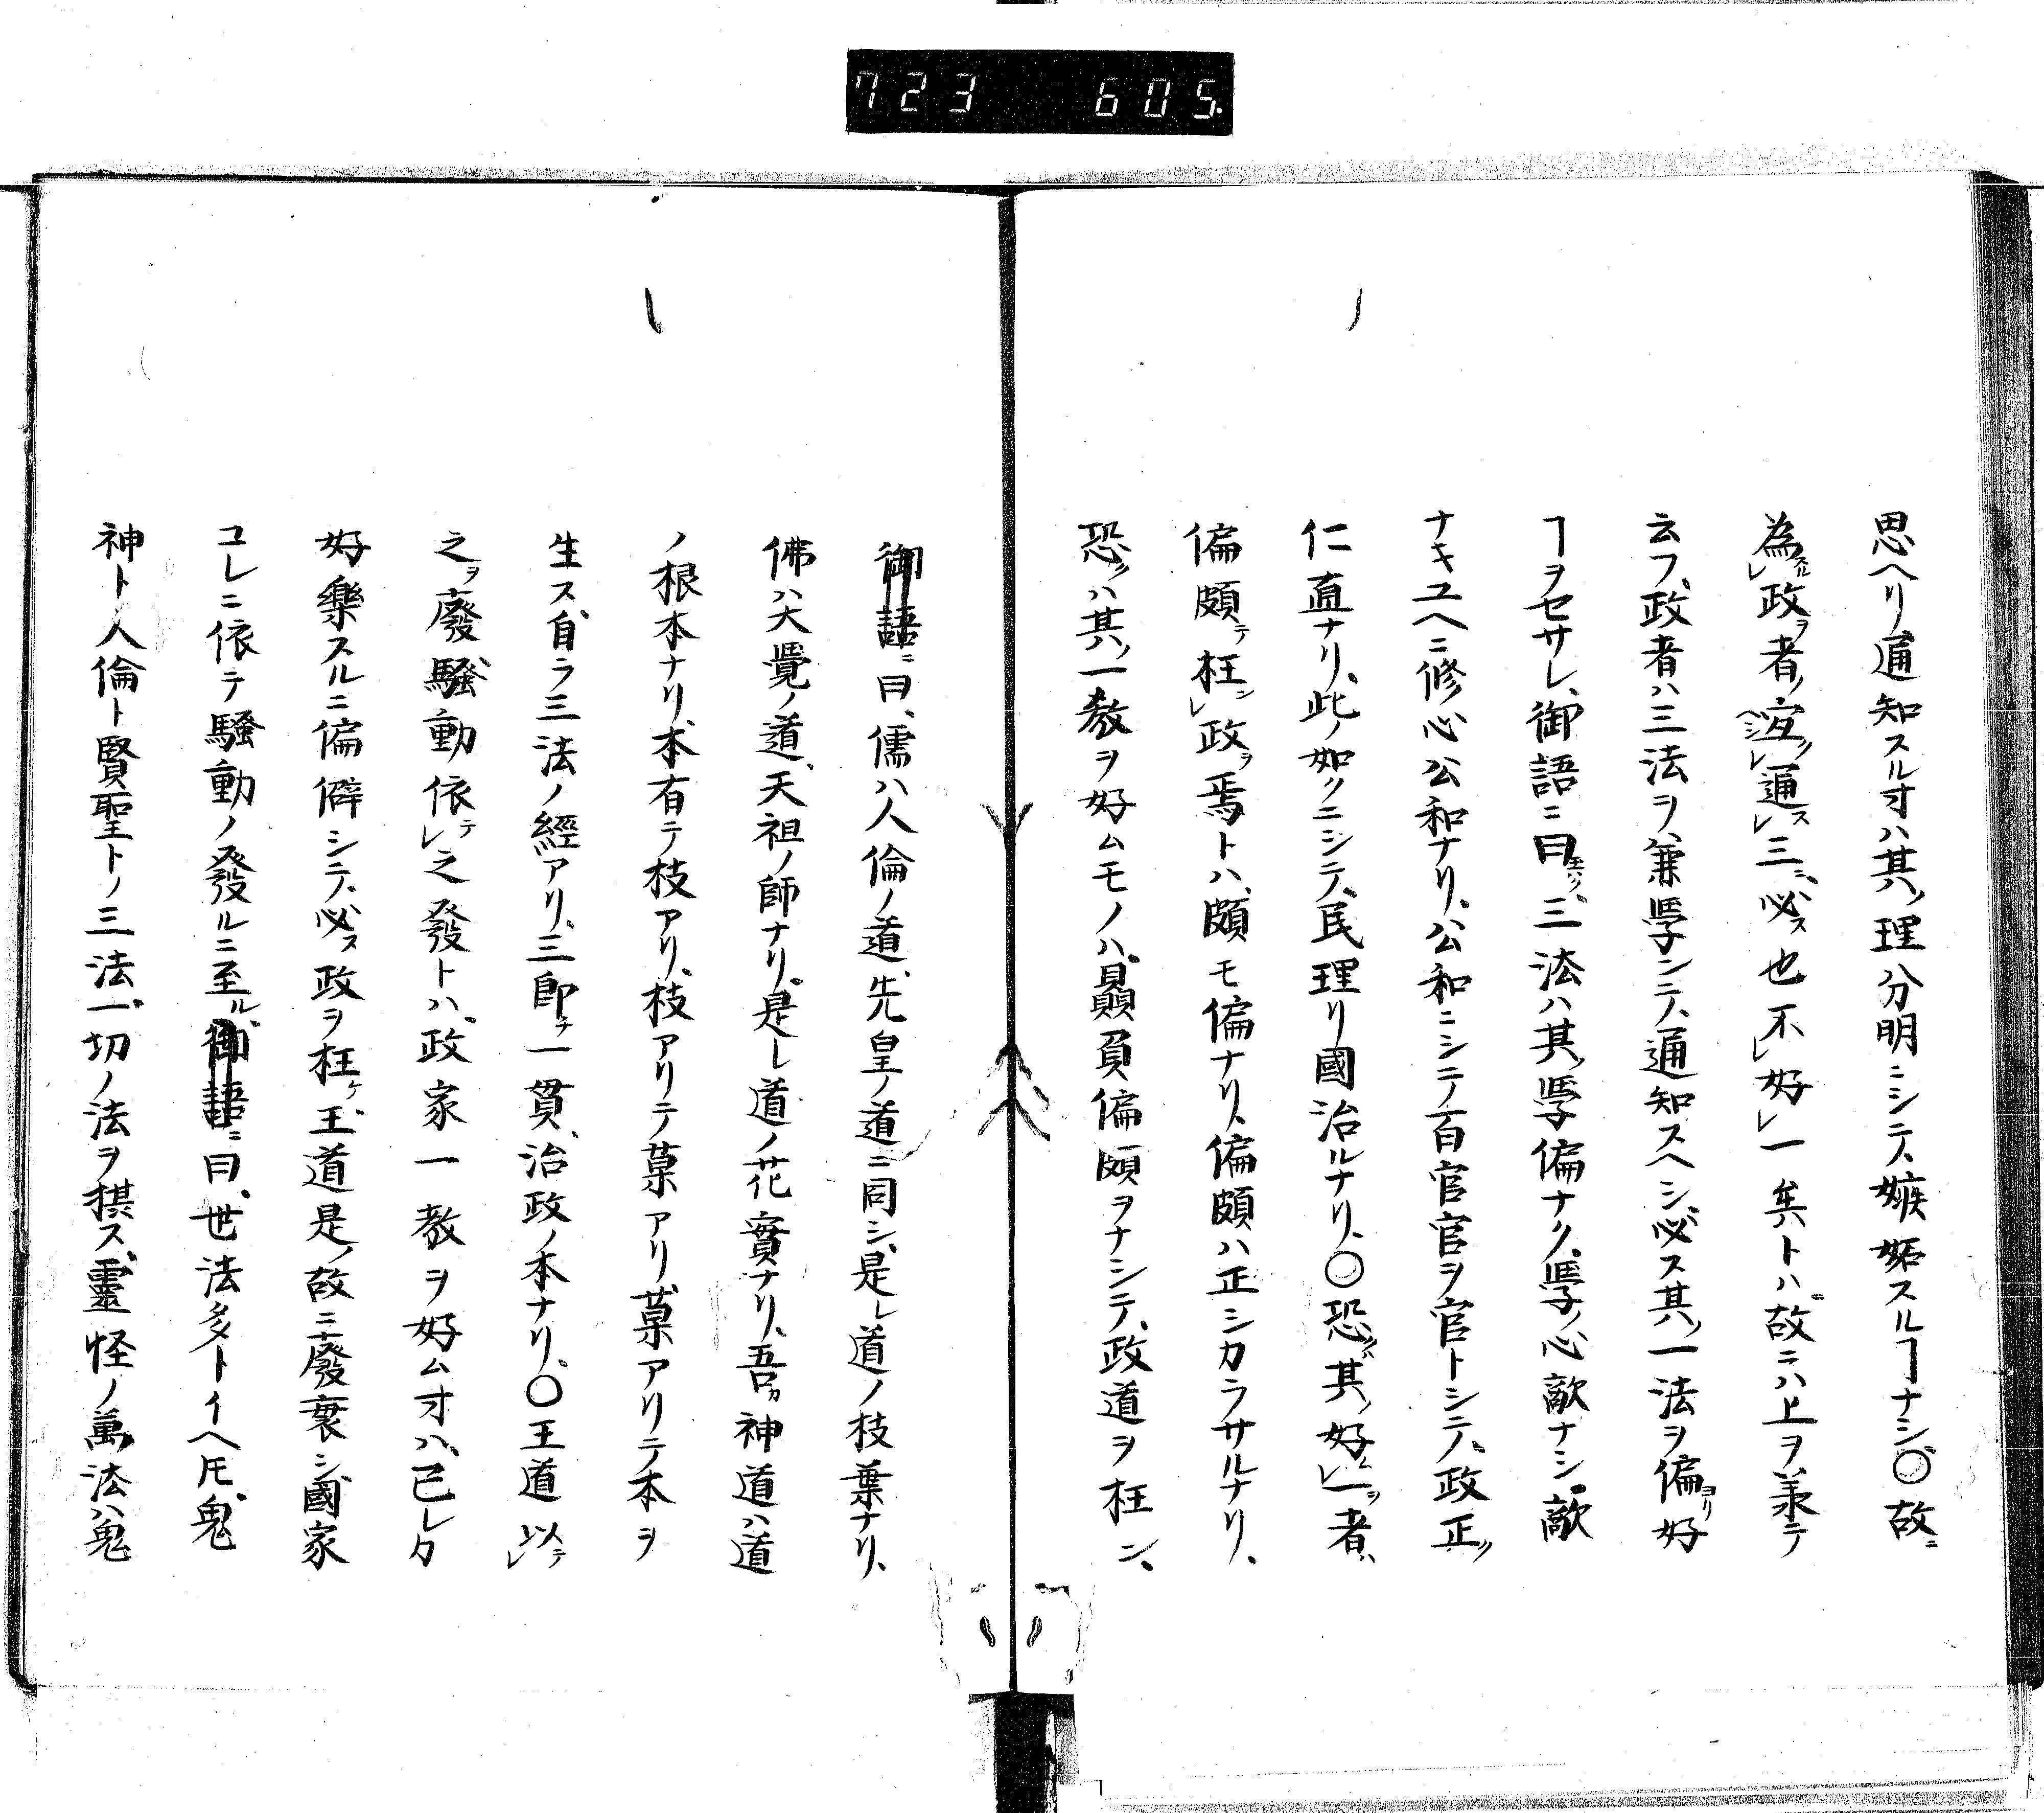 723 605.
思ヘリ、通知スルオハ其ノ理分明ニシテ、嫉妬スルヿナシ、〇故ニ
為ルレ政ヲ者ノ宜クヘシレ通スレ三ニ、必ス也不レ好レ一矣トハ、故ニハ上ヲ承テ
云フ、政者ハ三法ヲ兼學シテ、通知スヘシ、必ス其ノ一法ヲ偏ヨリ好
ヿヲセサレ、御語ニ曰モハク、三法ハ其ノ學偏ナク、學ノ心敵ナシ、敵
ナキユヘニ修心公和ナリ、公和ニシテ百官官ヲ官トシテ、政正ク
仁直ナリ、此ノ如クニシテ、民理リ國治ルナリ、〇恐クハ其ノ好ムレ一ヲ者、
偏頗テ枉ンレ政ヲ焉トハ、頗モ偏ナリ、偏頗ハ正シカラサルナリ、
恐クハ其ノ一教ヲ好ムモノハ、贔負偏頗ヲナシテ、政道ヲ枉ン、
御語ニ曰、儒ハ人倫ノ道、先皇ノ道ニ同シ、是レ道ノ枝葉ナリ、
佛ハ大覺ノ道、天祖ノ師ナリ、是レ道ノ花實ナリ、吾カ神道ハ道
ノ根本ナリ、本有テ枝アリ、枝アリテ菓アリ、菓アリテ本ヲ
生ス、自ラ三法ノ經アリ、三即チ一貫、治政ノ本ナリ、〇王道以テレ
之ヲ廢、騷動依テレ之發トハ、政家一教ヲ好ムオハ、己レカ
好樂スルニ偏僻シテ、必ス政ヲ枉ケ、王道是ノ故ニ廢衰シ、國家
コレニ依テ騷動ノ發ルニ至ル、御語ニ曰、世法多トイヘ𪜈、鬼
神ト人倫ト賢聖トノ三法、一切ノ法ヲ摂ス、靈怪ノ萬法ハ鬼